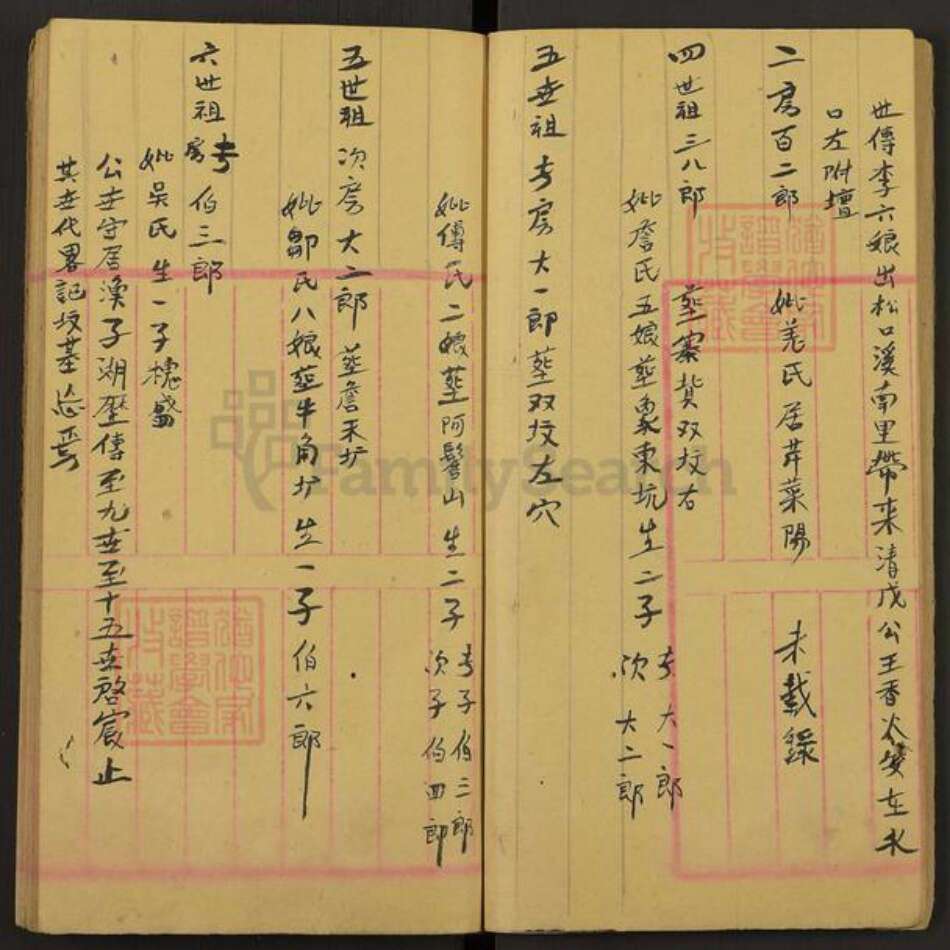 世傳李六娘出松口溪南里帶来清戊公王香火安在水
口左附壇
二房百二郎 妣羌氏居芹菜陽 未載録
四世祖三八郎 葬寨背双坟右
妣詹氏五娘葬象東坑生二子 長大一郎 次大二郎
五世祖長房大一郎葬双坟左穴
妣傅氏二娘葬阿髻山生二子 長子伯三郎 次子伯四郎
五世祖次房大二郎葬詹禾圹
妣鄒氏八娘葬牛角圹生一子伯六郎
六世祖長房伯三郎
妣吳氏生一子槐盛
公世守居漁子湖歷傳至九世至十五世啓宸止
其世代畧記坟墓忘焉
FamilySearch